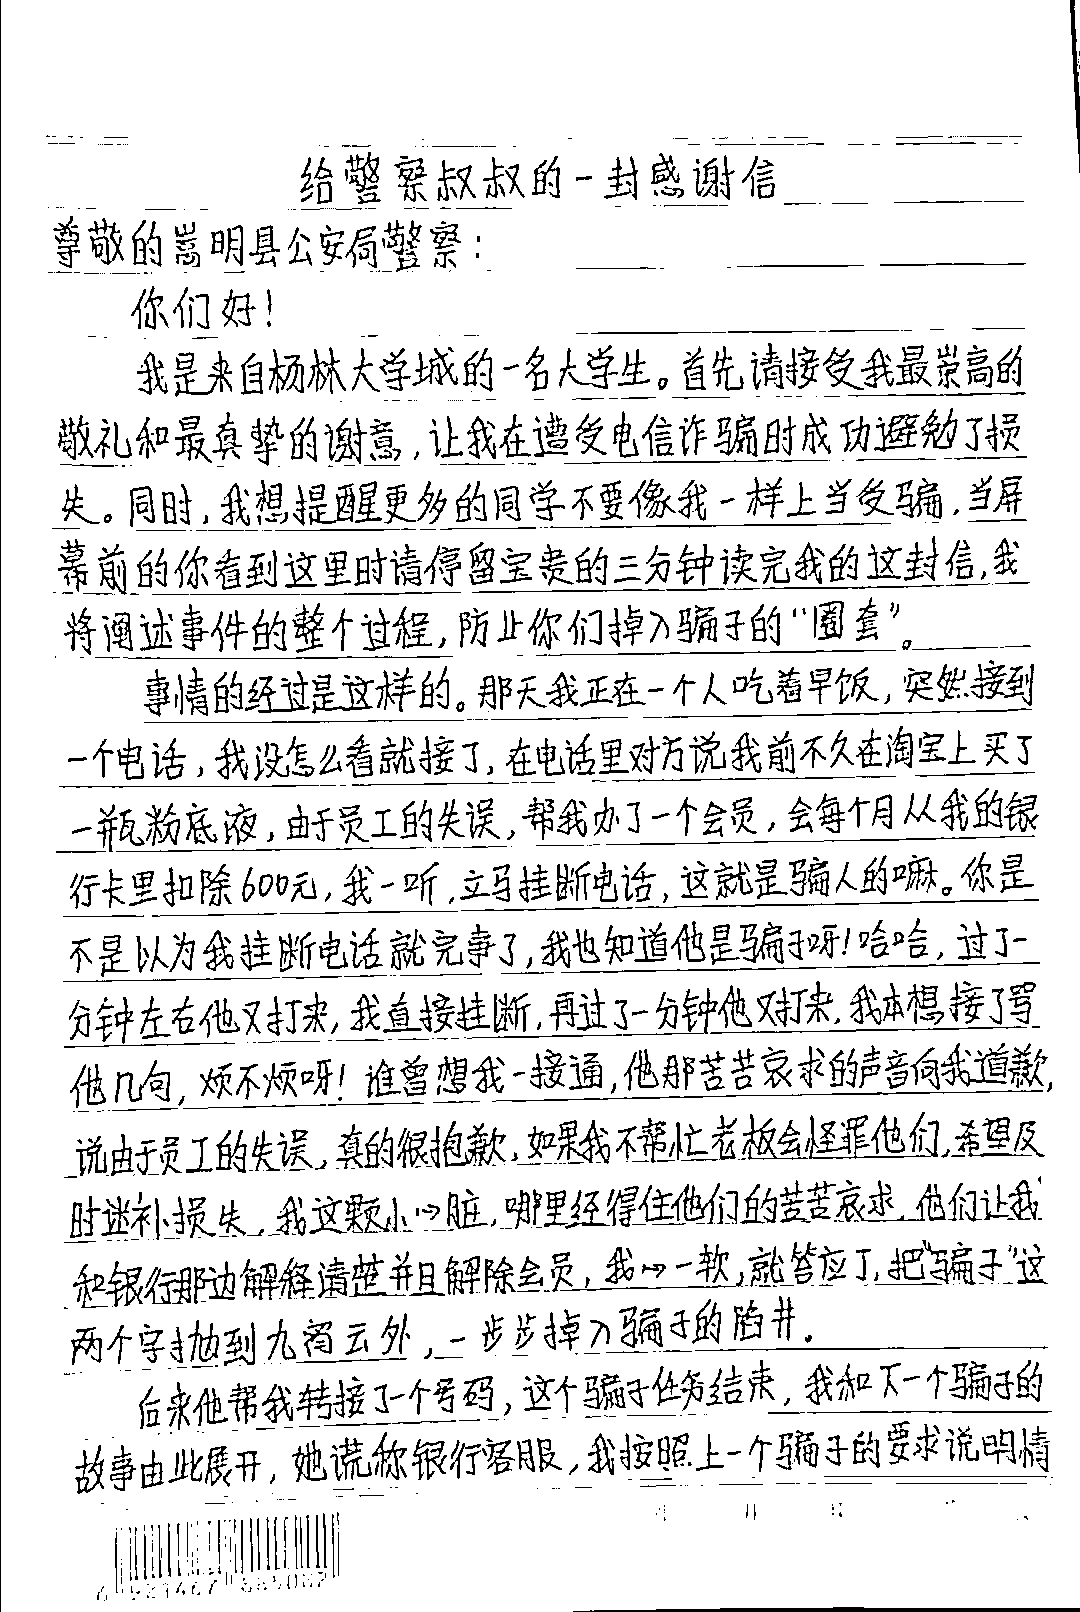 给警察叔叔的一封感谢信
尊敬的嵩明县公安局警察：
你们好！
我是来自杨林大学城的一名大学生。首先请接受我最崇高的
敬礼和最真挚的谢意，让我在遭受电信诈骗时成功避免了损
失。同时，我想提醒更多的同学不要像我一样上当受骗，当屏
幕前的你看到这里时请停留宝贵的三分钟读完我的这封信，我
将阐述事件的整个过程，防止你们掉入骗子的“圈套”。
事情的经过是这样的。那天我正在一个人吃着早饭，突然接到
一个电话，我没怎么看就接了，在电话里对方说我前不久在淘宝上买了
一瓶粉底液，由于员工的失误，帮我办了一个会员，会每个月从我的银
行卡里扣除600元，我一听，立马挂断电话，这就是骗人的嘛。你是
不是以为我挂断电话就完事了，我也知道他是骗子呀！哈哈，过了一
分钟左右他又打来，我直接挂断，再过了一分钟他又打来，我本想接了骂
他几句，烦不烦呀！谁曾想我一接通，他那苦苦哀求的声音向我道歉，
说由于员工的失误，真的很抱歉，如果我不帮忙老板会怪罪他们，希望及
时迷补损失，我这颗小心脏，哪里经得住他们的苦苦哀求，他们让我
和银行那边解释清楚并且解除会员，我心一软，就答应了，把“骗子”这
两个字抛到九霄云外，一步步掉入骗子的陷井．
后来他帮我转接了一个号码，这个骗子任务结束，我和下一个骗子的
故事由此展开，她谎称银行客服，我按照上一个骗子的要求说明情